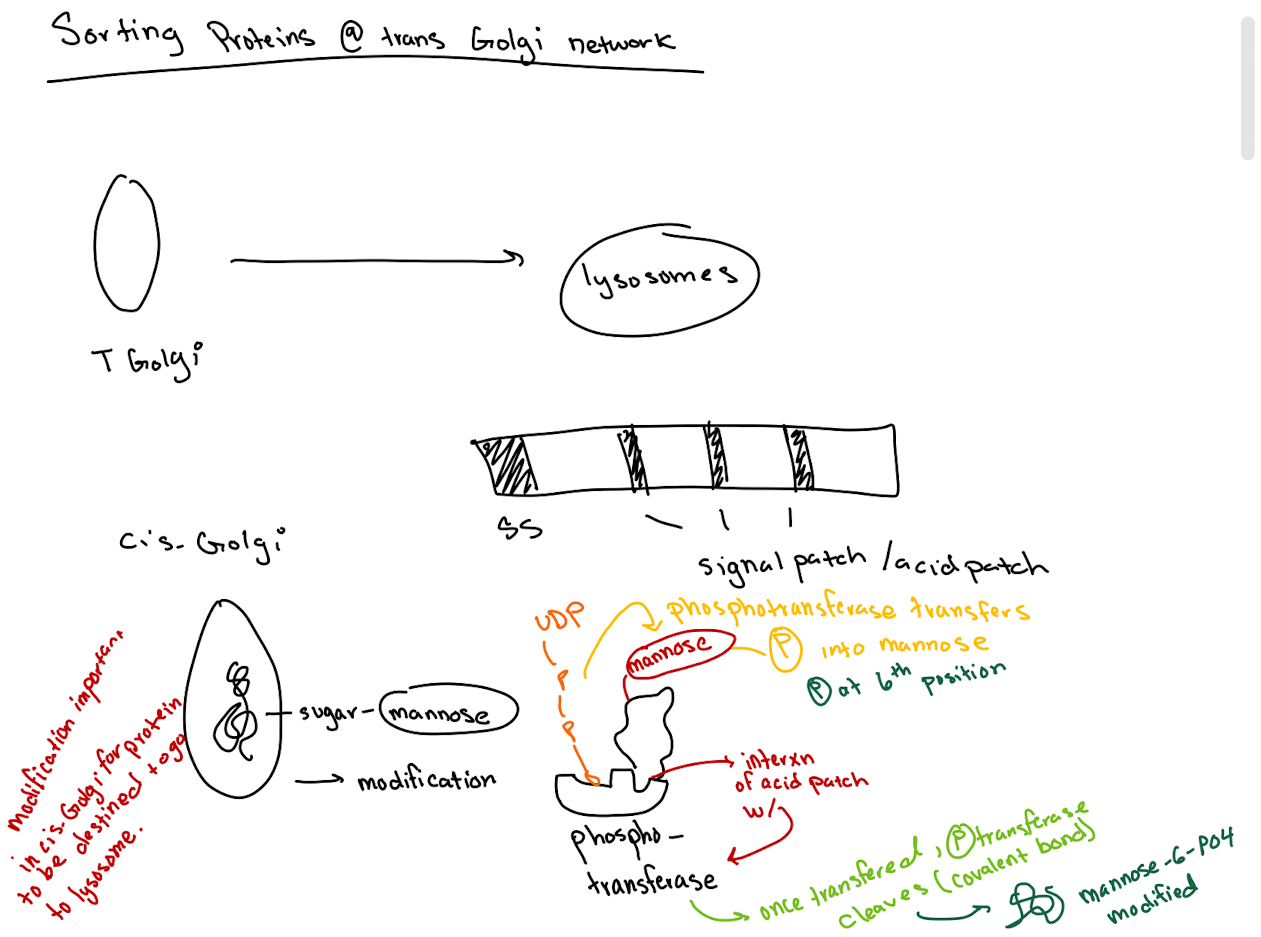 Sorting Proteins @ trans Golgi network
lysosomes
T Golgi
SS
signal patch / acid patch
cis-Golgi
sugar - mannose
→ modification
modification important
in cis-Golgi for protein
to be destined to go
to lysosome.
UDP
P
P
phosphotransferase transfers
P into mannose
P at 6th position
mannose
interxn
of acid patch
w/
phospho-
transferase
once transfered, P transferase
cleaves (covalent bond)
mannose-6-PO4
modified